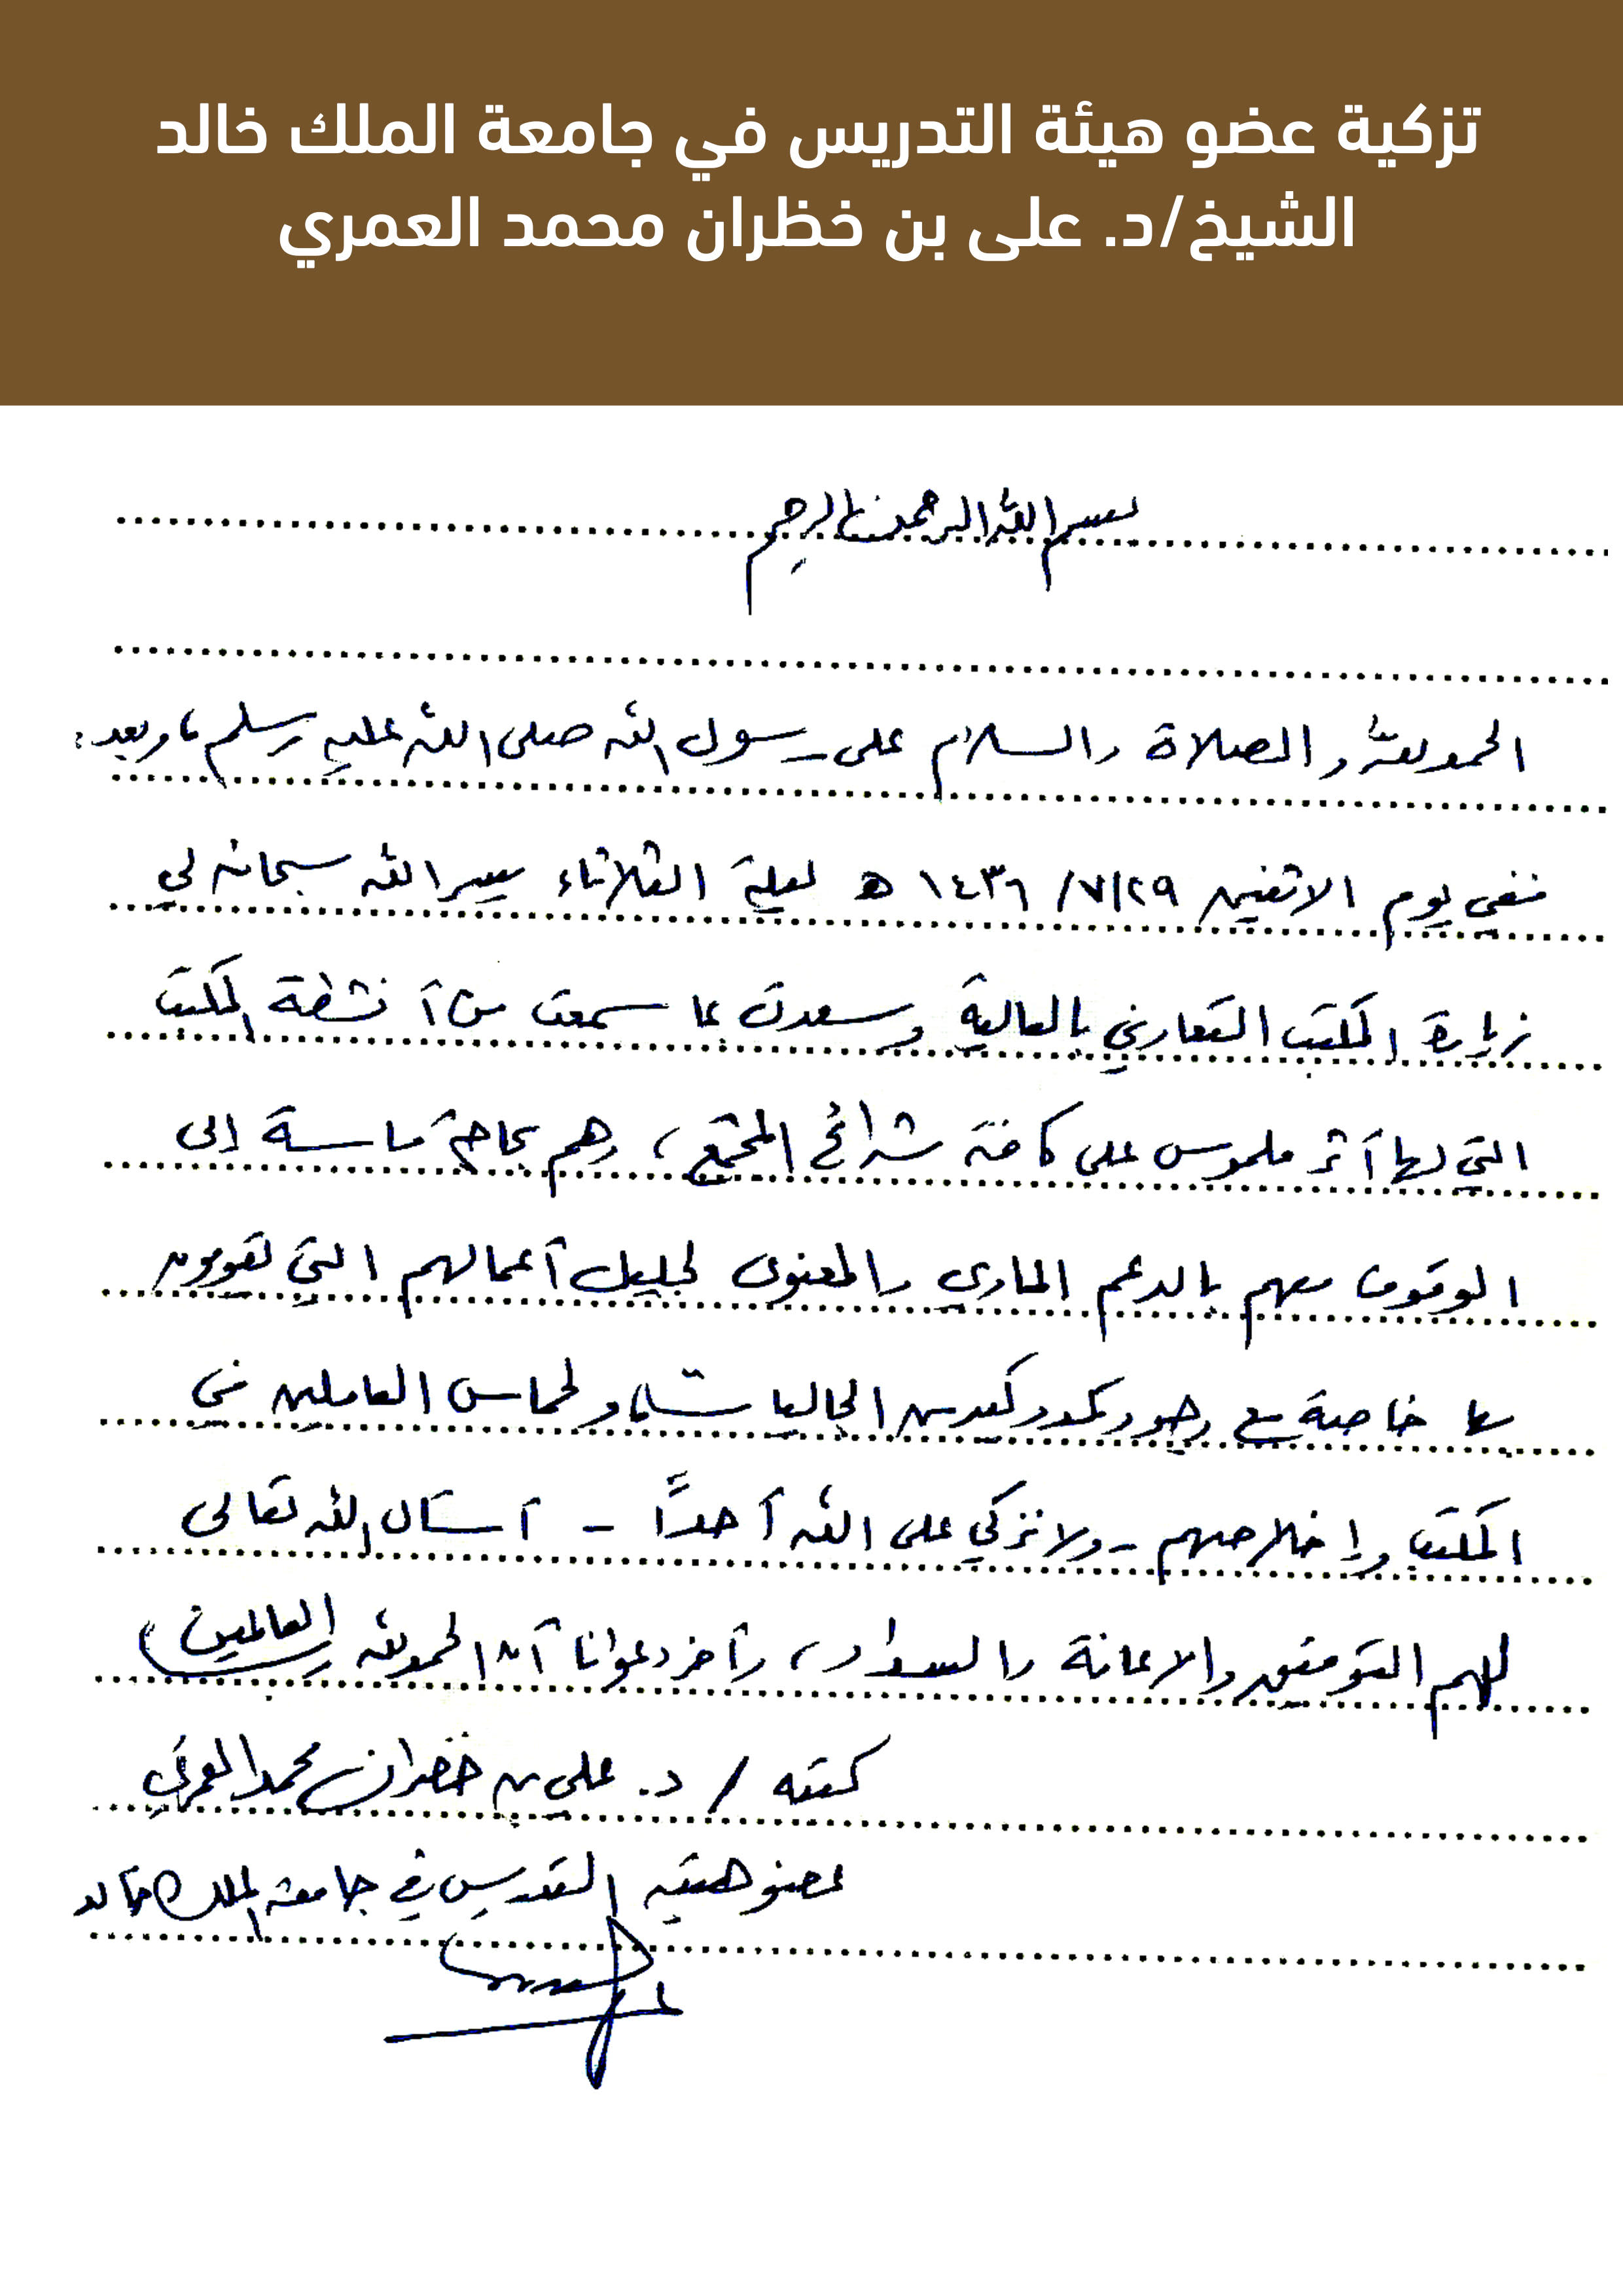 تزكية عضو هيئة التدريس في جامعة الملك خالد
الشيخ/د. على بن خظران محمد العمري
بسم الله الرحمن الرحيم
الحمد لله والصلاة والسلام على رسول الله صلى الله عليه وسلم، وبعد:
ففي يوم الاثنين ٧/٢٩/ ١٤٣٦ هـ ليلة الثلاثاء يسر الله سبحانه لي
زيارة المكتب التعاوني بالعالية وسعدت بما سمعت من أنشطة المكتب
التي لها أثر ملموس على كافة شرائح المجتمع، وهم بحاجة ماسة إلى
الوقوف معهم بالدعم المادي والمعنوي لجليل أعمالهم التي يقومون
بها خاصة مع وجود عدد كبير من الجاليات، ولحماس العاملين في
المكتب وإخلاصهم - ولا نزكي على الله أحداً - أسأل الله تعالى
لهم التوفيق والإعانة والسداد، وآخر دعوانا أن الحمد لله رب العالمين،
كتبه / د. علي بن خضران محمد العمري
عضو هيئة التدريس في جامعة الملك خالد